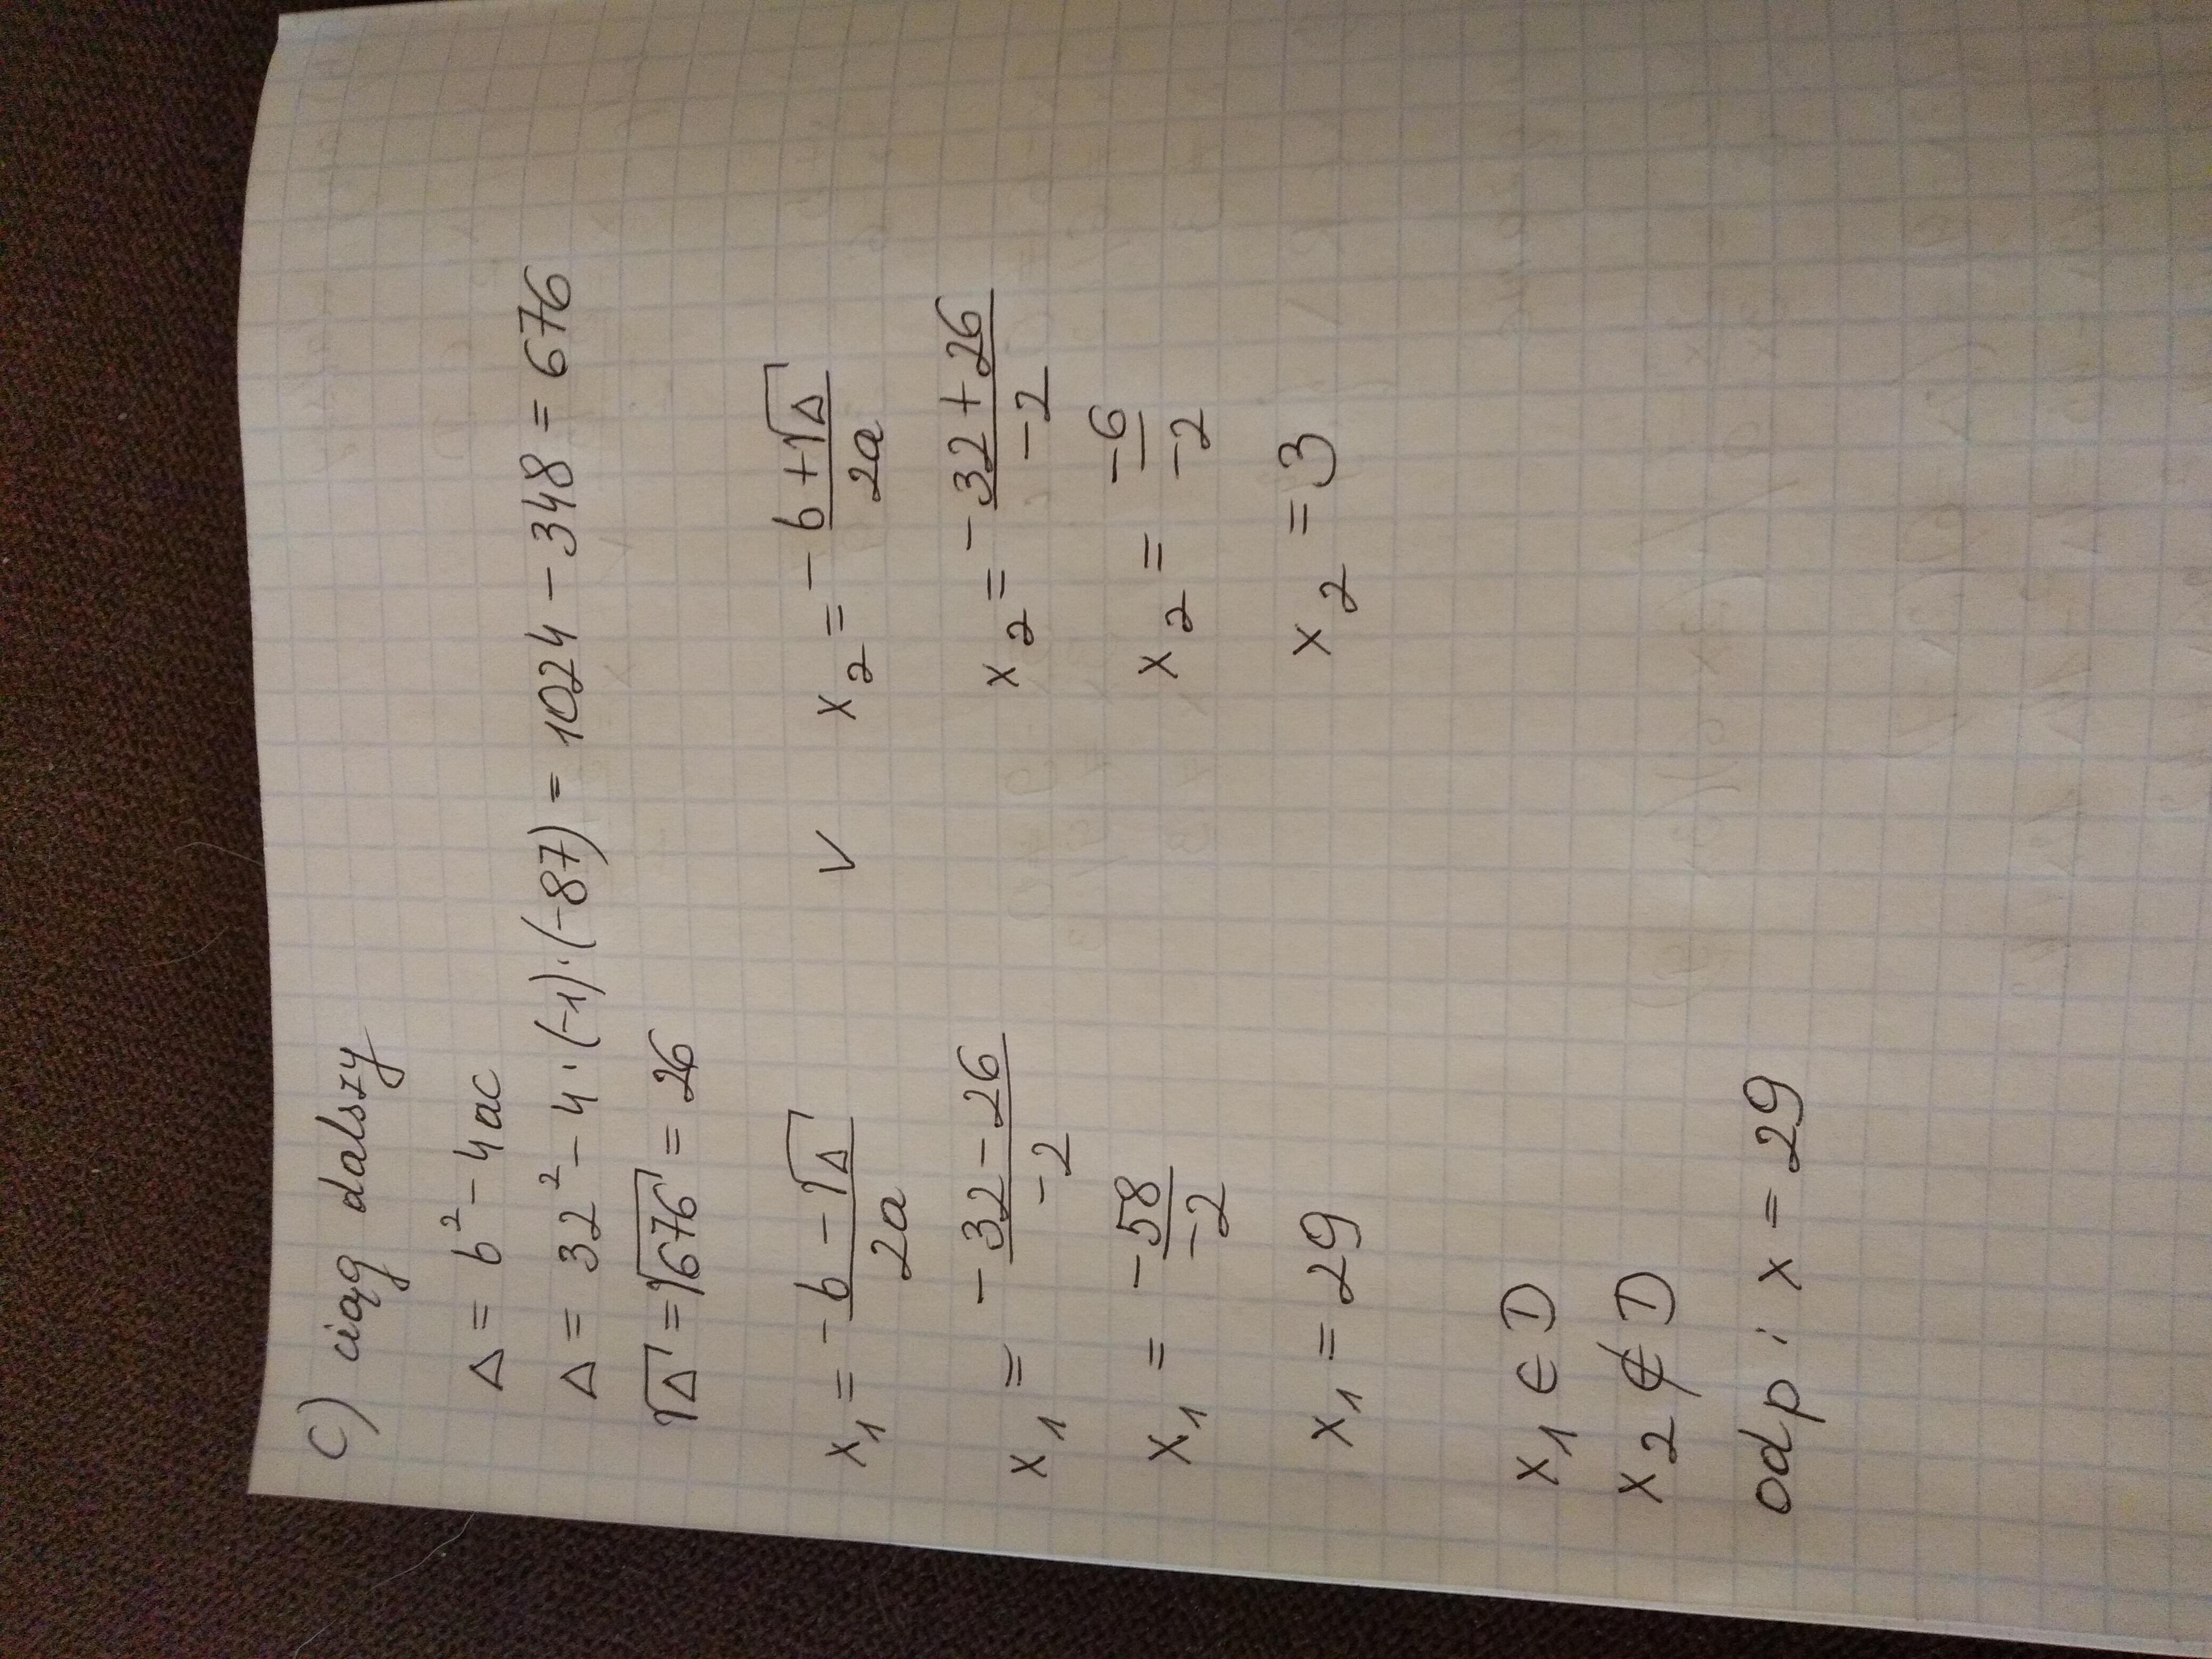 c) ciąg dalszy
Δ = b² - 4ac
Δ = 32² - 4 · (-1) · (-87) = 1024 - 348 = 676
√Δ = √676 = 26
x₁ = (-b - √Δ)/2a v x₂ = (-b + √Δ)/2a
x₁ = (-32 - 26)/-2 x₂ = (-32 + 26)/-2
x₁ = -58/-2 x₂ = -6/-2
x₁ = 29 x₂ = 3
x₁ ∈ D
x₂ ∉ D
odp: x = 29